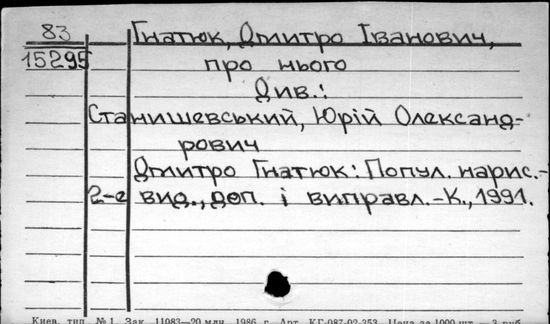 83
Гнатюк, Дмитро Іванович,
15295
про нього
Див.:
Станишевський, Юрій Олександ-
рович
Дмитро Гнатюк: Попул. нарис.-
2-е вид., доп. і виправл.-К., 1991.
Киев. тип. №1. Зак. 11083—20 млн. 1986 г. Арт. КГ-087-02-353. Цена за 1000 шт. — 3 руб.